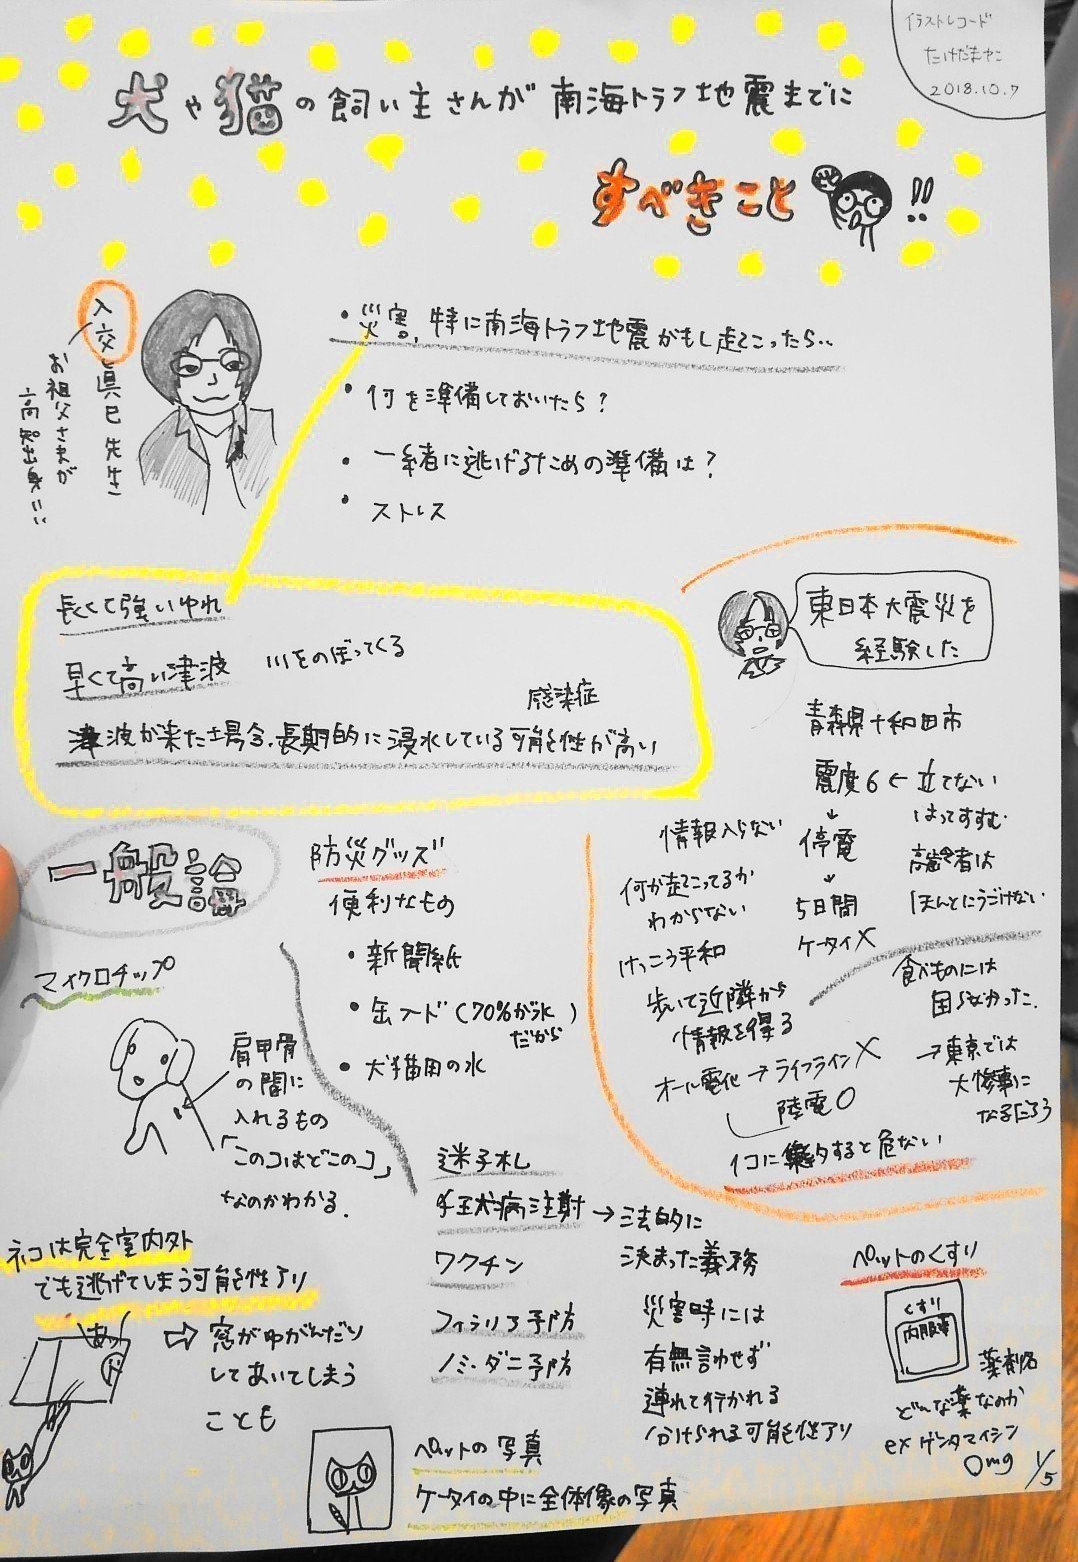 イラストレコード
たけだまやこ
2018.10.7
犬や猫の飼い主さんが南海トラフ地震までに
すべきこと!!
入交眞巳先生
お祖父さまが
高知出身
・災害、特に南海トラフ地震がもし起こったら..
・何を準備しておいたら?
・一緒に逃げるための準備は?
・ストレス
長くて強いゆれ
早くて高い津波 川をのぼってくる
感染症
津波が来た場合、長期的に浸水している可能性が高い
東日本大震災を
経験した
青森県十和田市
震度6 ← 立てない
はってすすむ
高齢者は
ほんとにうごけない
停電
5日間
ケータイ×
情報入らない
何が起こってるか
わからない
けっこう平和
歩いて近隣から
情報を得る
食べものには
困らなかった.
→東京では
大惨事に
なるだろう
オール電化→ライフライン×
陸電○
1コに集中すると危ない
一般論
マイクロチップ
肩甲骨
の間に
入れるもの
「このコはどこのコ」
なのかわかる.
防災グッズ
便利なもの
・新聞紙
・缶フード(70%が水だから)
・犬猫用の水
ネコは完全室内外
でも逃げてしまう可能性アリ
あっ
⇨窓がゆがんだり
してあいてしまう
ことも
迷子札
狂犬病注射→法的に
決まった義務
ワクチン
フィラリア予防
ノミ・ダニ予防
災害時には
有無言わせず
連れて行かれる
分けられる可能性アリ
ペットのくすり
くすり
内服薬
薬剤名
どんな薬なのか
ex ゲンタマイシン
0mg
ペットの写真
ケータイの中に全体像の写真
1/5